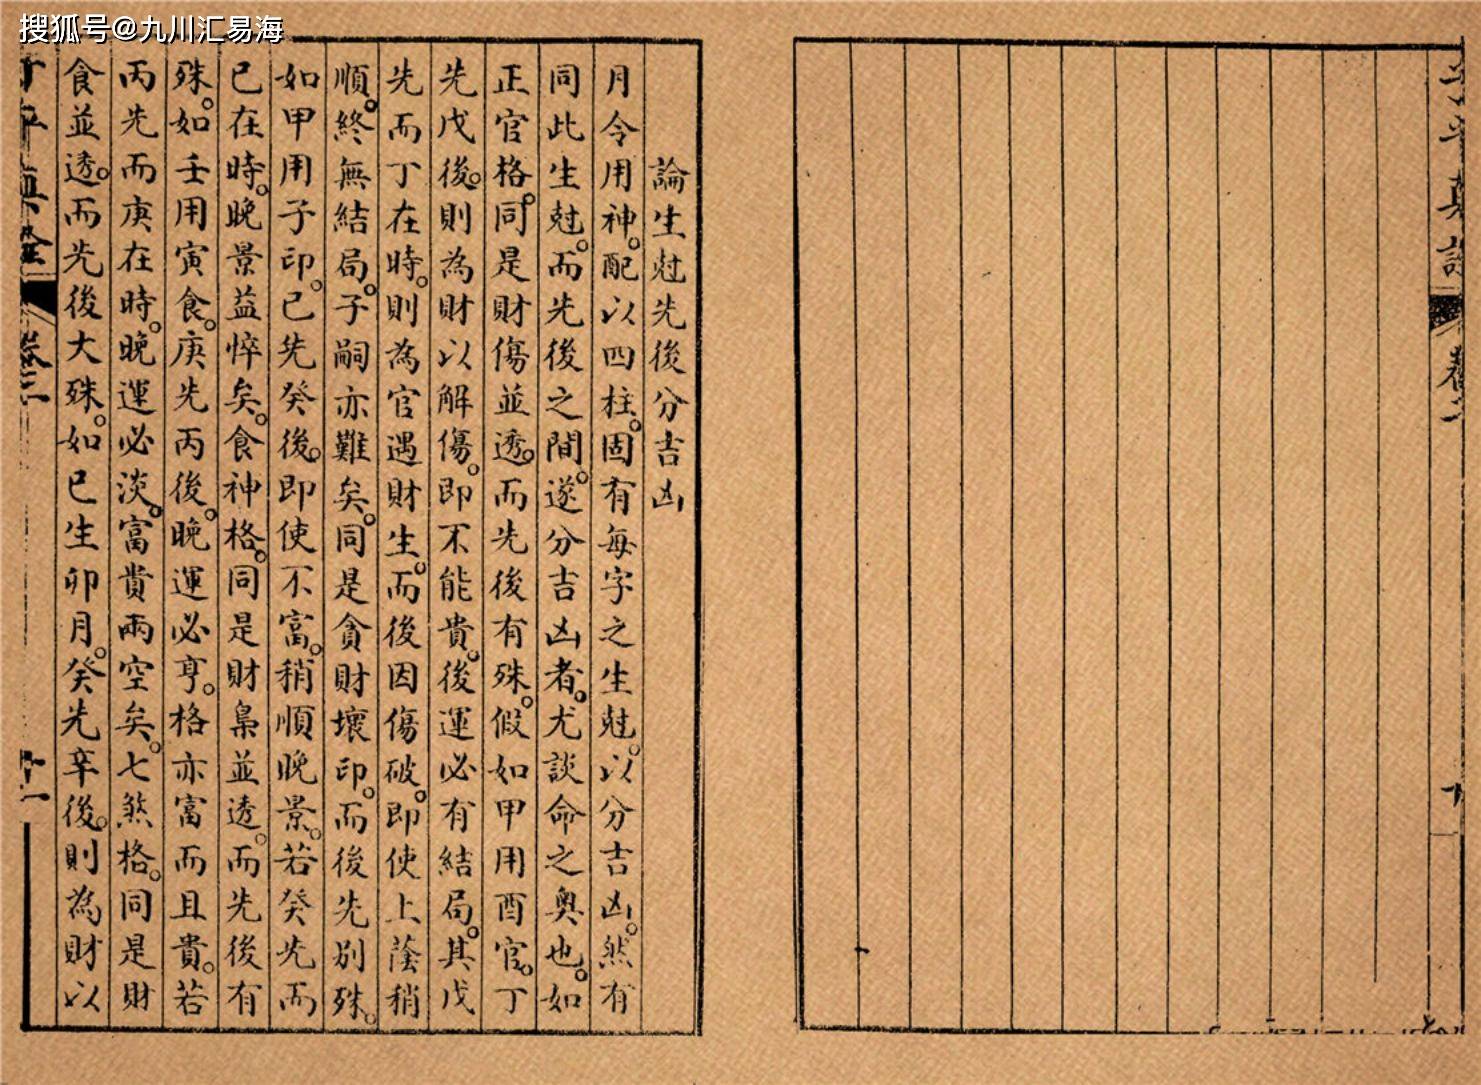 搜狐号@九川汇易海
論生尅先後分吉凶
月令用神。配以四柱。固有每字之生尅。以分吉凶。然有
同此生尅。而先後之間。遂分吉凶者。尤談命之奧也。如
正官格。同是財傷並透。而先後有殊。假如甲用酉官。丁
先戊後。則為財以解傷。即不能貴。後運必有結局。其戊
先而丁在時。則為官遇財生。而後因傷破。即使上蔭稍
順。終無結局。子嗣亦難矣。同是貪財壞印。而後先別殊。
如甲用子印。己先癸後。即使不富。稍順晚景。若癸先而
己在時。晚景益悴矣。食神格。同是財梟並透。而先後有
殊。如壬用寅食。庚先丙後。晚運必亨。格亦富而且貴。若
丙先而庚在時。晚運必淡。富貴兩空矣。七煞格。同是財
食並透。而先後大殊。如己生卯月。癸先辛後。則為財以
子平真詮
卷三
十一